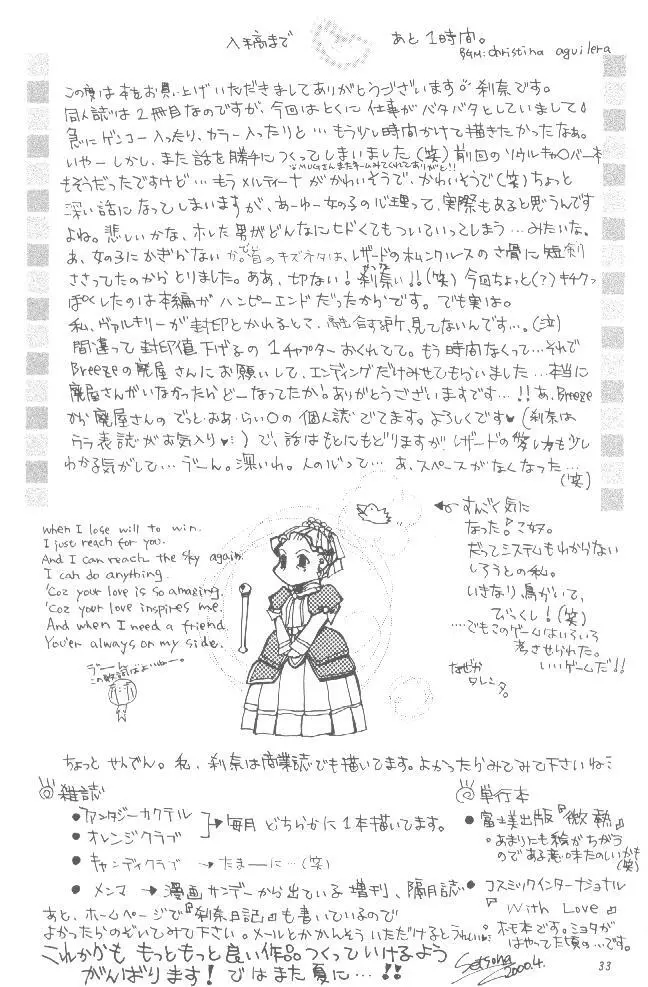 入稿まで あと1時間。
BGM:christina aguilera
この度は本をお買い上げいただきましてありがとうございます。刹奈です。
同人誌は2冊目なのですが、今回はとくに仕事がバタバタとしていまして
急にゲンコー入ったり、カラー入ったりと…もう少し時間かけて描きたかったなぁ。
いやーしかし、また話を勝手につくってしまいました(笑)前回のソウルキャ○バー本
もそうだったですけど…もうメルティーナがかわいそうで、かわいそうで(笑)ちょっと
深い話になってしまいますが、あーゆー女の子の心理って、実際もあると思うんです
よね。悲しいかな、ホレた男がどんなにヒドくてもついていってしまう…みたいな。
あ、女の子にかぎらないか。で首のキズネタは、レザードのホムンクルスの背骨に短剣
ささってたのからとりました。ああ、切ない!刹奈い!!(笑)今回ちょっと(?)キチクっ
ぽくしたのは本編がハッピーエンドだったからです。でも実は。
私、ヴァルキリーが封印とかれるとこ、融合する所、見てないんです…。(泣)
間違って封印値下げるの1チャプターおくれてて。もう時間なくって…それで
Breezeの廃屋さんにお願いして、エンディングだけみせてもらいました…本当に
廃屋さんがいなかったらどーなってたか!ありがとうございますです…!!あ、Breeze
から廃屋さんのでっと・おあ・らい○の個人誌でてます。よろしくです♥(刹奈は
うら表紙がお気入り♥)で、話はもとにもどりますがレザードの愛し方も少し
わかる気がして…うーん。深いわ。人の心って…あ、スペースがなくなった…
(笑)
when I lose will to win.
I just reach for you.
And I can reach the sky again.
I can do anything.
'Coz your love is so amazing.
'Coz your love inspires me.
And when I need a friend
You'er always on my side.
この歌詞はよいねー。
←すんごく気に
なった『コ奴。
だってシステムもわからない
しろうとの私。
いきなり鳥がいて、
びっくし!(笑)
…でもこのゲームはいろいろ
考させられた。
いいゲームだ!!
なぜか
タレンタ。
ちょっとせんでん。私、刹奈は商業誌でも描いてます。よかったらみてみて下さいね
雑誌
●ファンタジーカクテル
●オレンジクラブ
→毎月どちらかに1本描いてます。
●キャンディクラブ →たまーに…(笑)
●メンマ →漫画サンデーから出ている増刊、隔月誌
単行本
●富士美出版『微熱』
あまりにも絵がちがう
のである意味たのしいかも
(笑)
●コスミックインターナショナル
『With Love』
ホモ本です。ミヨタが
はやってた頃の…です。
あと、ホームページで『刹奈日記』も書いているので
よかったらのぞいてみて下さい。メールとかかんそういただけるとうれしい
これからも もっともっと良い作品つくっていけるよう
がんばります!ではまた夏に…!!
Setsona
2000.4.
33